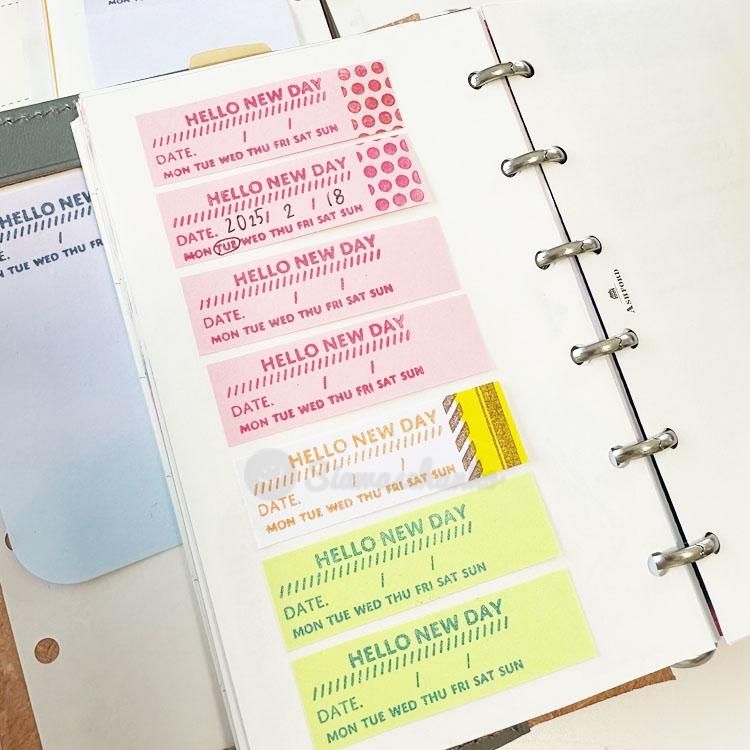 MON TUE
HELLO NEW
MON TUE WED THU FR
HELLO NEW DAY
/ /
DATE.
MON TUE WED THU FRI SAT SUN
HELLO NEW DAY
DATE. 2025/ 2 / 18
MON TUE WED THU FRI SAT SUN
HELLO NEW DAY
/ /
DATE.
MON TUE WED THU FRI SAT SUN
HELLO NEW DAY
/ /
DATE.
MON TUE WED THU FRI SAT SUN
HELLO NEW DAY
/ /
DATE.
MON TUE WED THU FRI SAT SUN
HELLO NEW DAY
/ /
DATE.
MON TUE WED THU FRI SAT SUN
HELLO NEW DAY
/ /
DATE.
MON TUE WED THU FRI SAT SUN
ASHFORD